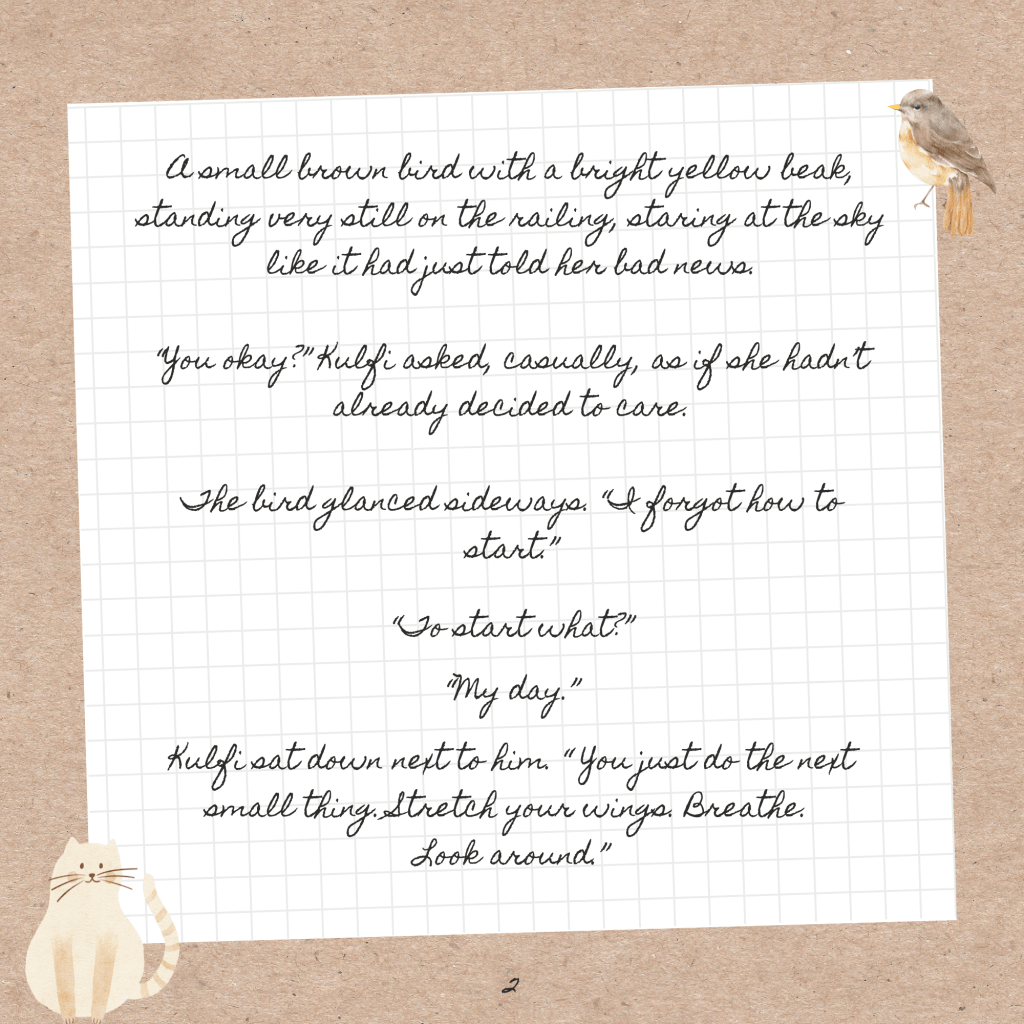 A small brown bird with a bright yellow beak,
standing very still on the railing, staring at the sky
like it had just told her bad news.
“You okay?” Kulfi asked, casually, as if she hadn’t
already decided to care.
The bird glanced sideways. “I forgot how to
start.”
“To start what?”
“My day.”
Kulfi sat down next to him. “ You just do the next
small thing. Stretch your wings. Breathe.
Look around.”
2